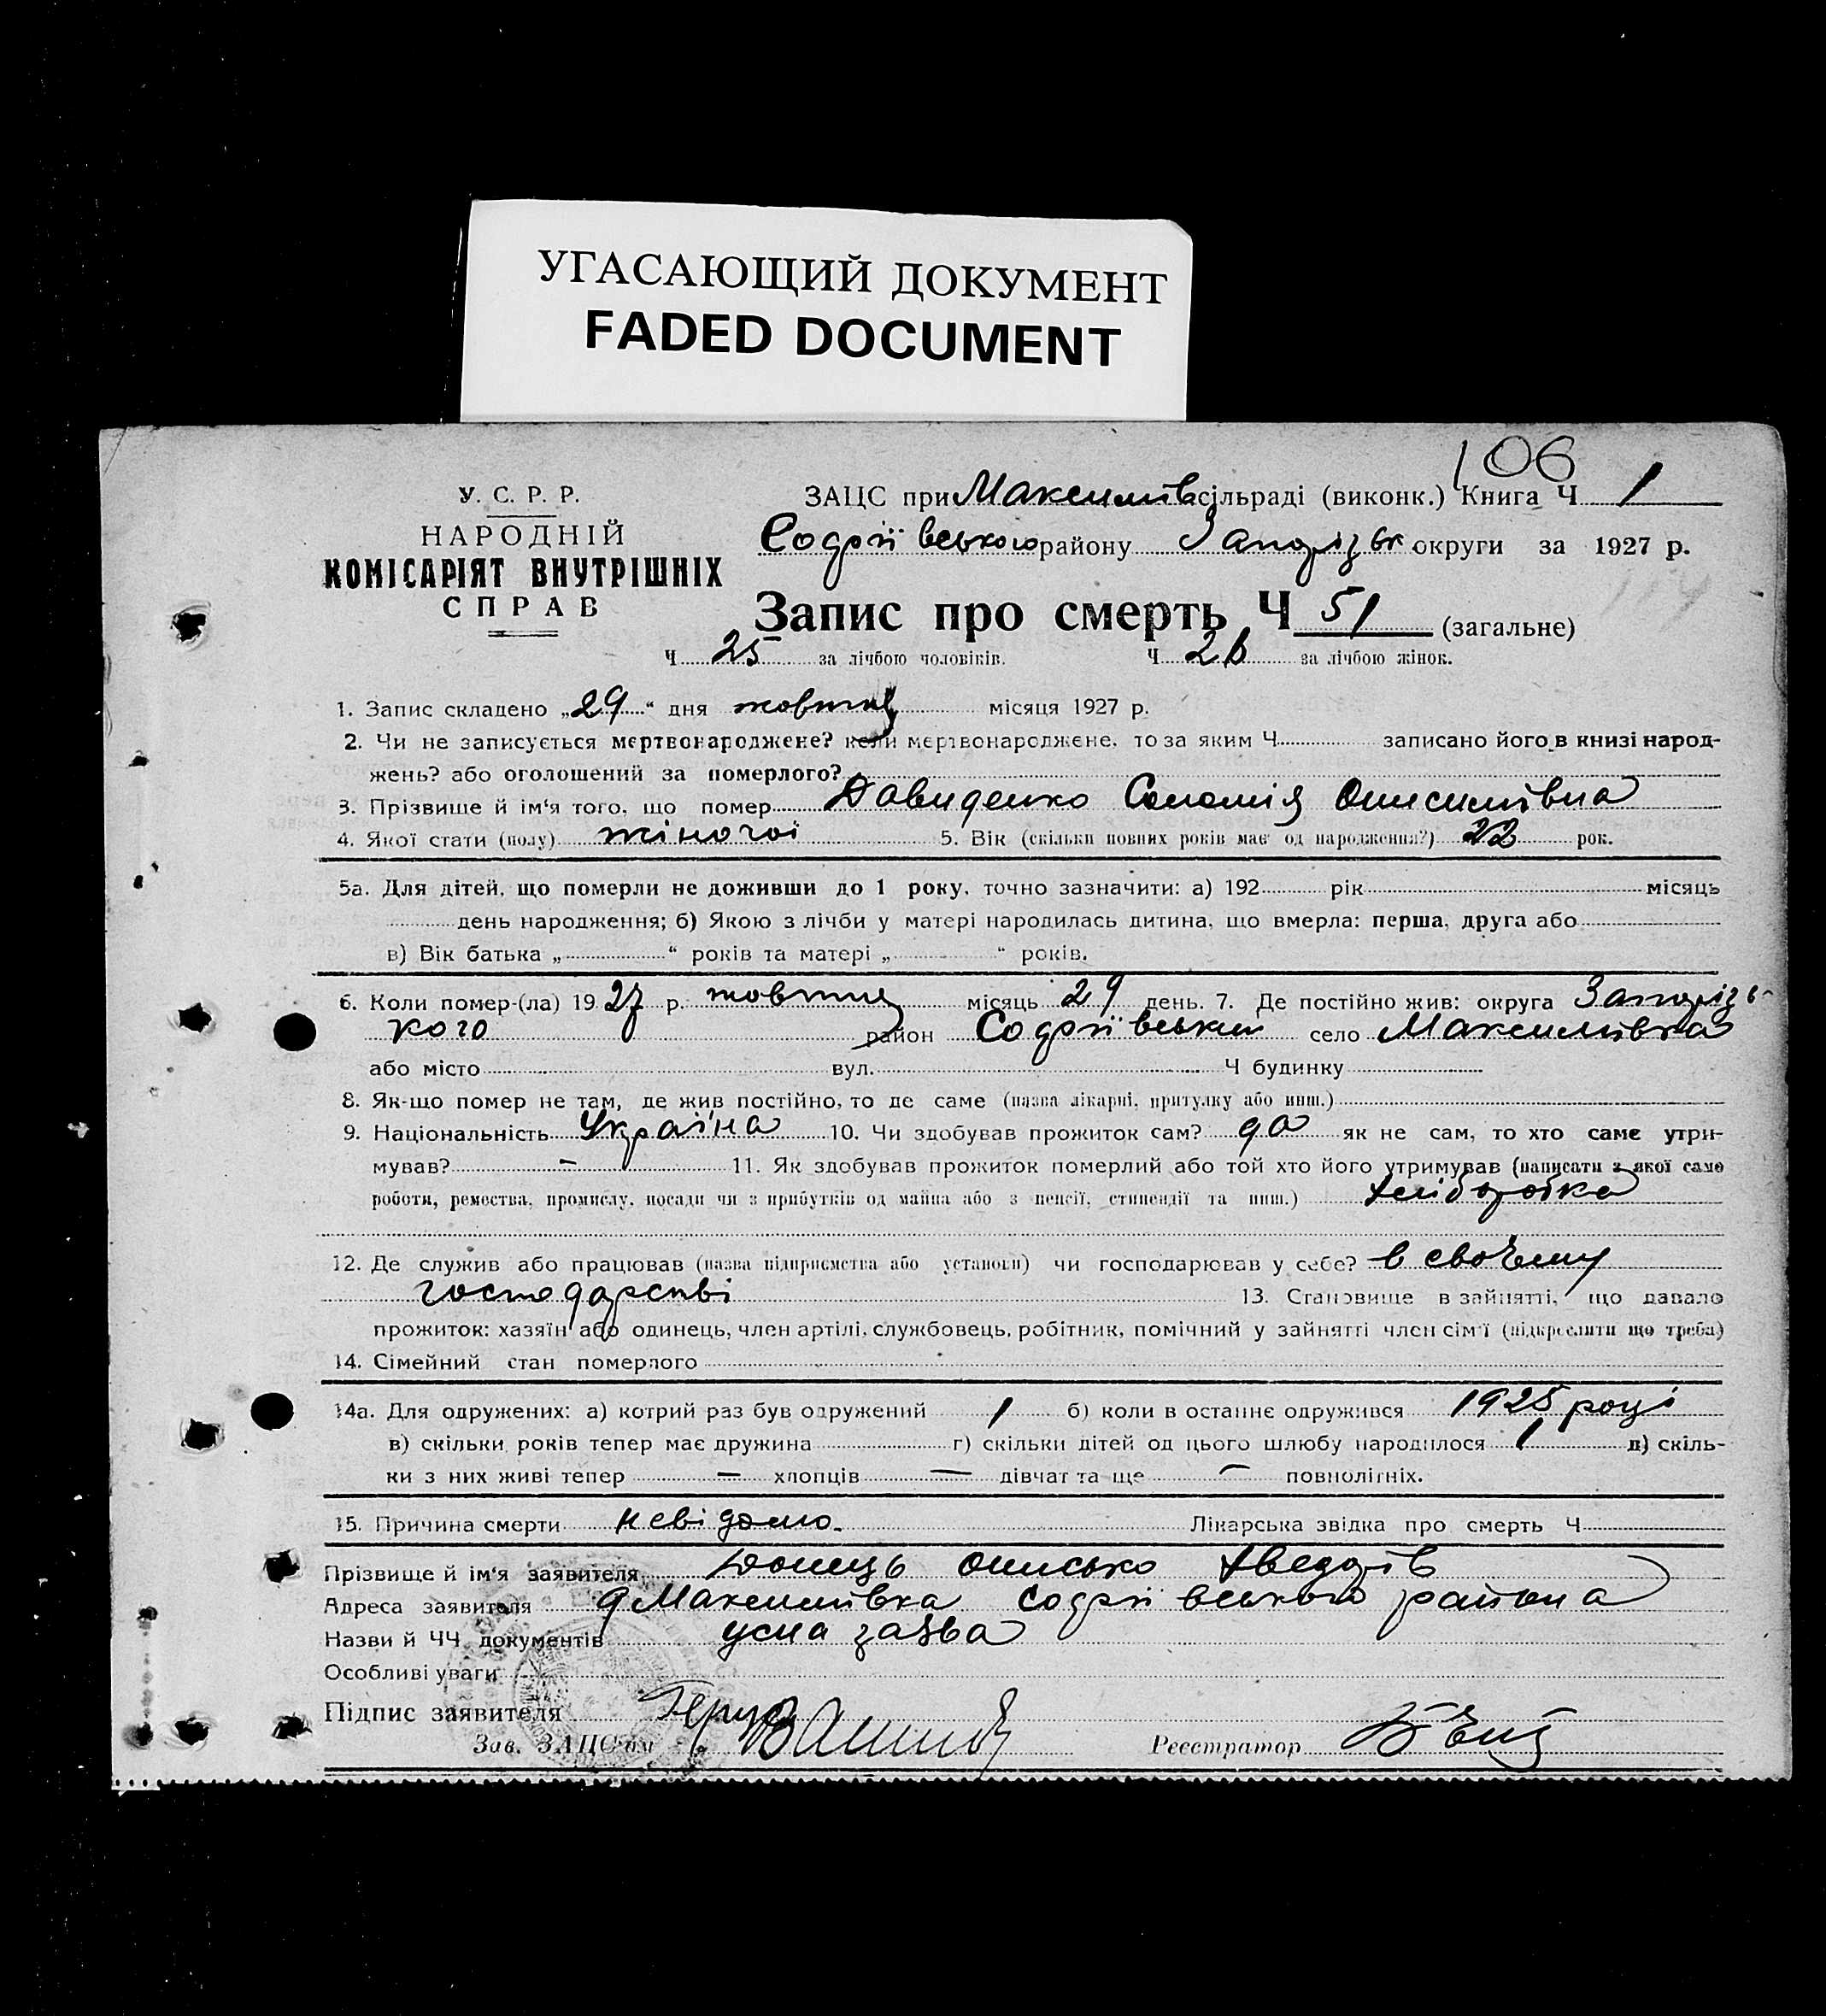 УГАСАЮЩИЙ ДОКУМЕНТ
FADED DOCUMENT
106
У. С. Р. Р.
НАРОДНІЙ
КОМІСАРІЯТ ВНУТРІШНІХ
СПРАВ
ЗАЦС при Максимів сільраді (виконк.) Книга Ч 1
Софіївського району Запорізьк округи за 1927 р.
Запис про смерть Ч 51 (загальне)
Ч 25 за лічбою чоловіків. Ч 26 за лічбою жінок.
1. Запис складено „29“ дня жовтня місяця 1927 р.
2. Чи не записується мертвонароджене? коли мертвонароджене, то за яким Ч записано його в книзі народ-
жень? або оголошений за померлого?
3. Прізвище й ім'я того, що помер Давиденко Соломія Онисимівна
4. Якої стати (полу) жіночоі 5. Вік (скільки повних років має од народження?) 22 рок.
5а. Для дітей, що померли не доживши до 1 року, точно зазначити: а) 192 рік місяць
день народження; б) Якою з лічби у матері народилась дитина, що вмерла: перша, друга або
в) Вік батька „ “ років та матері „ “ років.
6. Коли помер-(ла) 1927 р. жовтня місяць 29 день. 7. Де постійно жив: округа Запорізь-
кого район Софіївський село Максимівка
або місто вул. Ч будинку
8. Як-що помер не там, де жив постійно, то де саме (назва лікарні, притулку або инш.)
9. Національність Україна 10. Чи здобував прожиток сам? да як не сам, то хто саме утри-
мував? — 11. Як здобував прожиток померлий або той хто його утримував (написати з якої само
роботи, ремества, промислу, посади чи з прибутків од майна або з пенсії, стипендії та инш.) хліборобка
12. Де служив або працював (назва підприємства або установи) чи господарював у себе? в своєму
господарстві 13. Становище в зайнятті, що давало
прожиток: хазяїн або одинець, член артілі, службовець, робітник, помічний у зайнятті член сім'ї (підкреслити що треба)
14. Сімейний стан померлого
14а. Для одружених: а) котрий раз був одружений 1 б) коли в останнє одружився 1925 році
в) скільки років тепер має дружина г) скільки дітей од цього шлюбу народилося 1 д) скіль-
ки з них живі тепер — хлопців — дівчат та ще — повнолітніх.
15. Причина смерти невідомо. Лікарська звідка про смерть Ч
Прізвище й ім'я заявителя Донець Онисько
Адреса заявителя Максимівка Софіївського района
Назви й ЧЧ документів усна заява
Особливі уваги
Підпис заявителя
Зав. ЗАЦС'ом Реєстратор